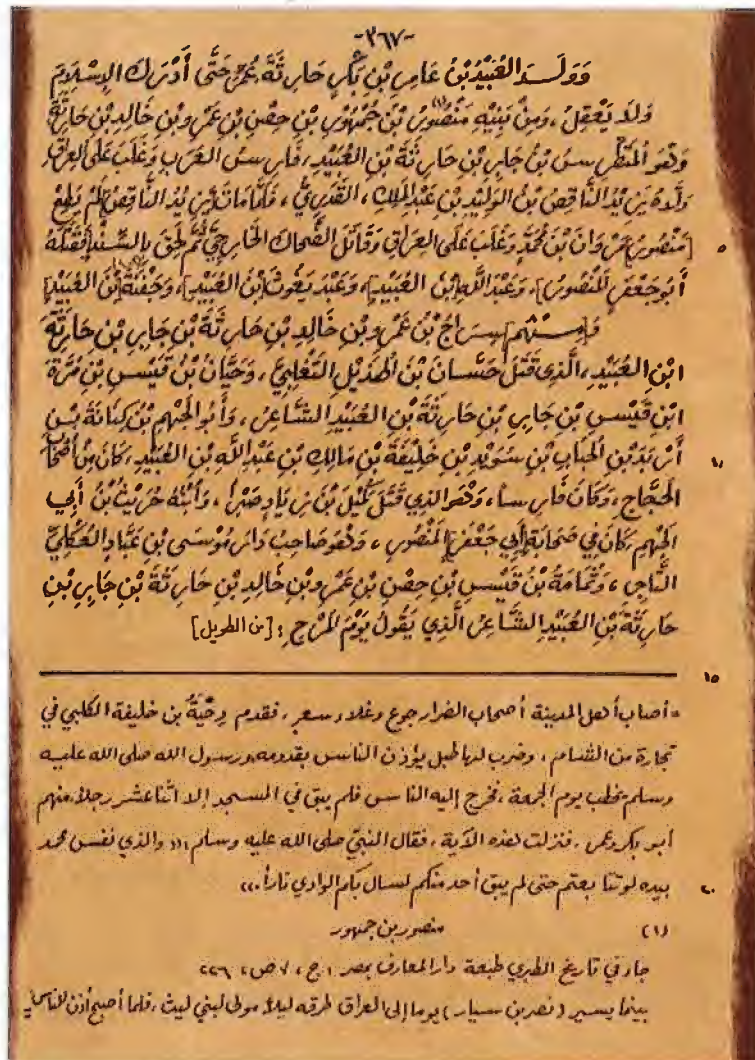 -٣٦٧-
وَوَلَدَ العُبَيْدُ بْنُ عَامِرِ بْنِ بَكْرٍ حَارِثَةَ عُمِّرَ حَتَّى أَدْرَكَ الإِسْلَامَ
وَلَا يَعْقِلُ، وَمِنْ بَنِيْهِ مَنْصُورُ (١) بْنُ جُمْهُورِ بْنِ حِصْنِ بْنِ عَمْرِو بْنِ خَالِدِ بْنِ حَارِثَةَ
وَهُوَ بْنُ جَابِرِ بْنِ حَارِثَةَ بْنِ العُبَيْدِ، فَارِسُ العَرَبِ وَغَلَبَ عَلَى العِرَاقِ
وَلَّاهُ يَزِيْدُ النَّاقِصُ بْنُ الوَلِيْدِ بْنِ عَبْدِ المَلِكِ، القَدَرِيُّ، فَلَمَّا مَاتَ يَزِيْدُ النَّاقِصُ لَمْ يُطِعْ
[مَنْصُورُ] مَرْوَانَ بْنَ مُحَمَّدٍ وَغَلَبَ عَلَى العِرَاقِ وَقَاتَلَ الضَّحَّاكَ الخَارِجِيَّ ثُمَّ لَحِقَ بِالسِّنْدِ [فَقَتَلَهُ ٥
أَبُو جَعْفَرٍ المَنْصُورُ]، وَعَبْدَ اللَّهِ [بْنَ العُبَيْدِ]، وَعَبْدَ يَغُوثَ [بْنَ العُبَيْدِ]، وَجَفْنَةَ [بْنَ العُبَيْدِ]
وَ[مِنْهُم] سِرَاجُ بْنُ عَمْرِو بْنِ خَالِدِ بْنِ حَارِثَةَ بْنِ جَابِرِ بْنِ حَارِثَةَ
ابْنِ العُبَيْدِ، الَّذِي قَتَلَ حَسَّانَ بْنَ الهُذَيْلِ التَّغْلِبِيَّ، وَحَيَّانُ بْنُ قَيْسِ بْنِ مُرَّةَ
ابْنِ قَيْسِ بْنِ جَابِرِ بْنِ حَارِثَةَ بْنِ العُبَيْدِ الشَّاعِرُ، وَأَبُو الجَهْمِ بْنُ كِنَانَةَ بْنِ
أَرْبَدَ بْنِ الحُبَابِ بْنِ سُوَيْدِ بْنِ خَلِيْفَةَ بْنِ مَالِكِ بْنِ عَبْدِ اللَّهِ بْنِ العُبَيْدِ، كَانَ مِنْ أَصْحَابِ ١٠
الحَجَّاجِ، وَكَانَ فَارِساً، وَهُوَ الذِي قَتَلَ كُمَيْلَ بْنَ زِيَادٍ صَبْراً، وَابْنُهُ حُرَيْثُ بْنُ أَبِي
الجَهْمِ كَانَ فِي صَحَابَةِ [أَبِي جَعْفَرٍ] المَنْصُورِ، وَهُوَ صَاحِبُ دَارِ مُوْسَى بْنِ عَبَّادٍ العُكْلِيِّ
التَّاجِرِ، وَثُمَامَةُ بْنُ قَيْسِ بْنِ حِصْنِ بْنِ عَمْرِو بْنِ خَالِدِ بْنِ حَارِثَةَ بْنِ جَابِرِ بْنِ
حَارِثَةَ بْنِ العُبَيْدِ الشَّاعِرُ الَّذِي يَقُولُ يَوْمَ المَرْجِ: [من الطويل]
١٥
= أصاب أهل المدينة أصحاب الضرار جوع وغلاء سعر، فقدم دِحْيَةُ بن خليفة الكلبي في
تجارة من الشام، وضرب لها طبل يؤذن الناس بقدومه ورسول الله صلى الله عليه
وسلم يخطب يوم الجمعة، فخرج إليه الناس فلم يبق في المسجد إلا اثنا عشر رجلاً، منهم
أبو بكر وعمر، فنزلت هذه الآية، فقال النبيّ صلى الله عليه وسلم: ((والذي نفس محمد
بيده لو تتابعتم حتى لم يبق أحد منكم لسال بكم الوادي ناراً.)) ٢٠
(١) منصور بن جمهور
جاء في تاريخ الطبري طبعة دار المعارف بمصر، ج، ٧ ص، ٢٢٦
بينما يسير (نصر بن سيار) يوماً إلى العراق طرقه ليلاً مولى لبني ليث، فلما أصبح أذن للناس